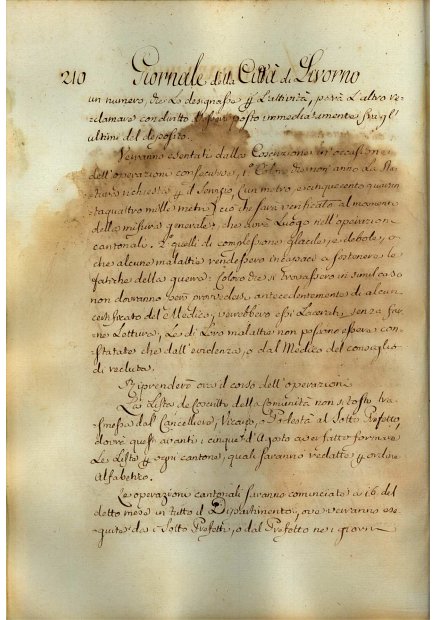 210 Giornale della Città di Livorno
un numero che lo designasse p l'attività, potrà l'altro re=
clamare con diritto d'esser posto immediatamente fra gl'
ultimi del deposito.
Verranno esentati dalla Coscrizione in occasione
dell'operazioni consecutive, 1.° Coloro che non anno la Sta=
tura richiesta p il servizio (un metro, e cinquecento quaran
taquattro mille metri) ciò che sarà verificato al momento
della misura generale, che avrà luogo nell'operazione
cantonale. 2. quelli di complessione gracile, e debole, o
che alcune malattie rendessero incapace a sostenere le
fatiche della guerra: Coloro che si trovassero in simil caso
non dovranno però provvedersi antecedentemente di alcun
certificato del Medico, verrebbero essi lacerati, senza far=
ne lettura, le di loro malattie non possano essere con=
statate che dall'evidenza, o dal Medico del consiglio
di recluta.
Si riprenderà ora il corso dell'operazioni
La Lista de Coscritti della Comunità non si tosto tra=
smessa dal Cancelliere, Vicario, o Podestà al Sotto Prefetto,
dovrà questi avanti i cinque d'Agosto aver fatto formare
le Liste p ogni cantone, quali saranno redatte p ordine
Alfabetico.
Le operazioni cantonali saranno cominciate a' 16. del
detto mese in tutto il Dipartimento, ove verranno ese=
guite da i Sotto Prefetti, o dal Prefetto nei giorni